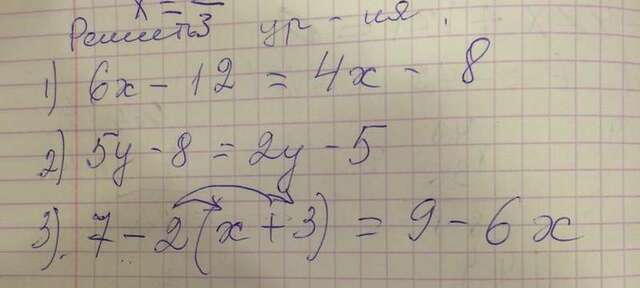 x =
Решить 3 ур-ия.
1) 6x - 12 = 4x - 8
2) 5y - 8 = 2y - 5
3). 7 - 2(x + 3) = 9 - 6x